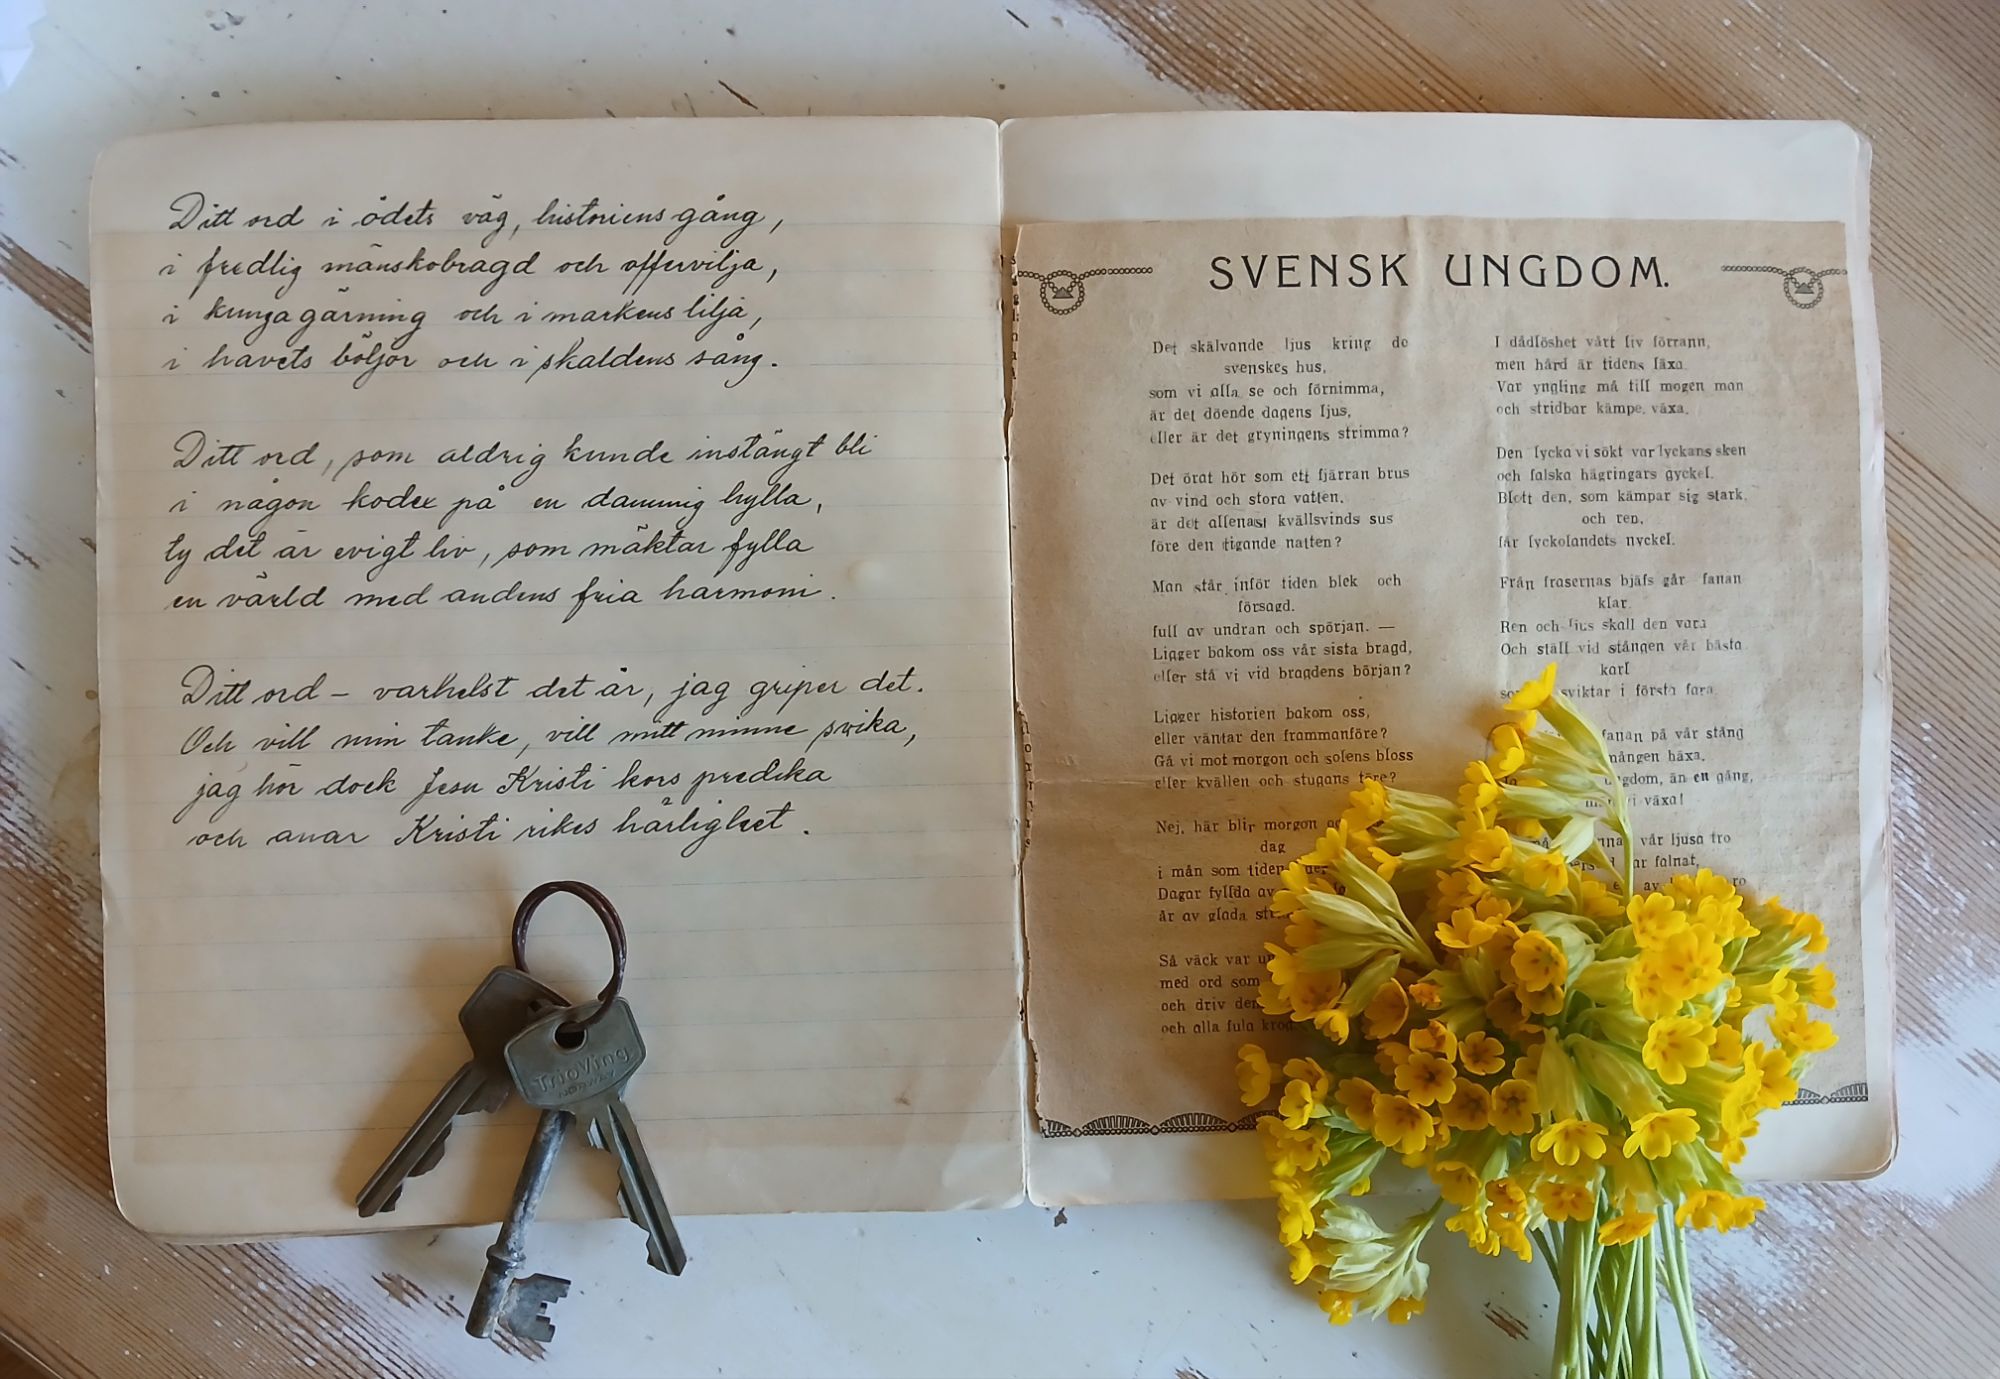 Ditt ord i ödets väg, historiens gång,
i fredlig mänskobragd och offervilja,
i kungagärning och i markens lilja,
i havets böljor och i skaldens sång.
Ditt ord, som aldrig kunde instängt bli
i någon kodex på en dammig hylla,
ty det är evigt liv, som mäktar fylla
en värld med andens fria harmoni.
Ditt ord – varhelst det är, jag griper det.
Och vill min tanke, vill mitt minne svika,
jag hör dock Jesu Kristi kors predika
och anar Kristi rikes härlighet.
TrioVing
NORWAY
SVENSK UNGDOM.
Det skälvande ljus kring de
svenskes hus,
som vi alla se och förnimma,
är det döende dagens ljus,
eller är det gryningens strimma?
Det örat hör som ett fjärran brus
av vind och stora vatten,
är det allenast kvällsvinds sus
före den tigande natten?
Man står inför tiden blek och
försagd,
full av undran och spörjan. —
Ligger bakom oss vår sista bragd,
eller stå vi vid bragdens början?
Ligger historien bakom oss,
eller väntar den frammanföre?
Gå vi mot morgon och solens bloss
eller kvällen och stugans töre?
Nej, här blir morgon
dag
i mån som tiden
Dagar fyllda av
är av glada
Så väck var
med ord som
och driv
och alla fula
I dådlöshet vårt liv förrann,
men hård är tidens läxa.
Var yngling må till mogen man
och stridbar kämpe växa.
Den lycka vi sökt var lyckans sken
och falska hägringars gyckel.
Blott den, som kämpar sig stark,
och ren,
får lyckolandets nyckel.
Från frasernas bjäfs går fanan
klar.
Ren och ljus skall den vara
Och ställ vid stången vår bästa
karl
sviktar i första fara.
fanan på vår stång
mången häxa.
än en gång,
vi växa!
vår ljusa tro
falnat,
av